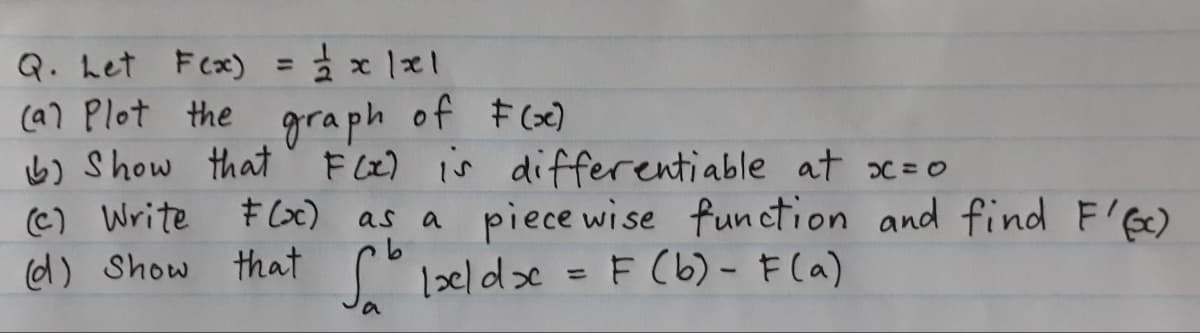 Q. Let F(x) = 1/2 x |x|
(a) Plot the graph of F(x)
(b) Show that F(x) is differentiable at x=0
(c) Write F(x) as a piece wise function and find F'(x)
(d) Show that ∫_a^b |x|dx = F(b) - F(a)